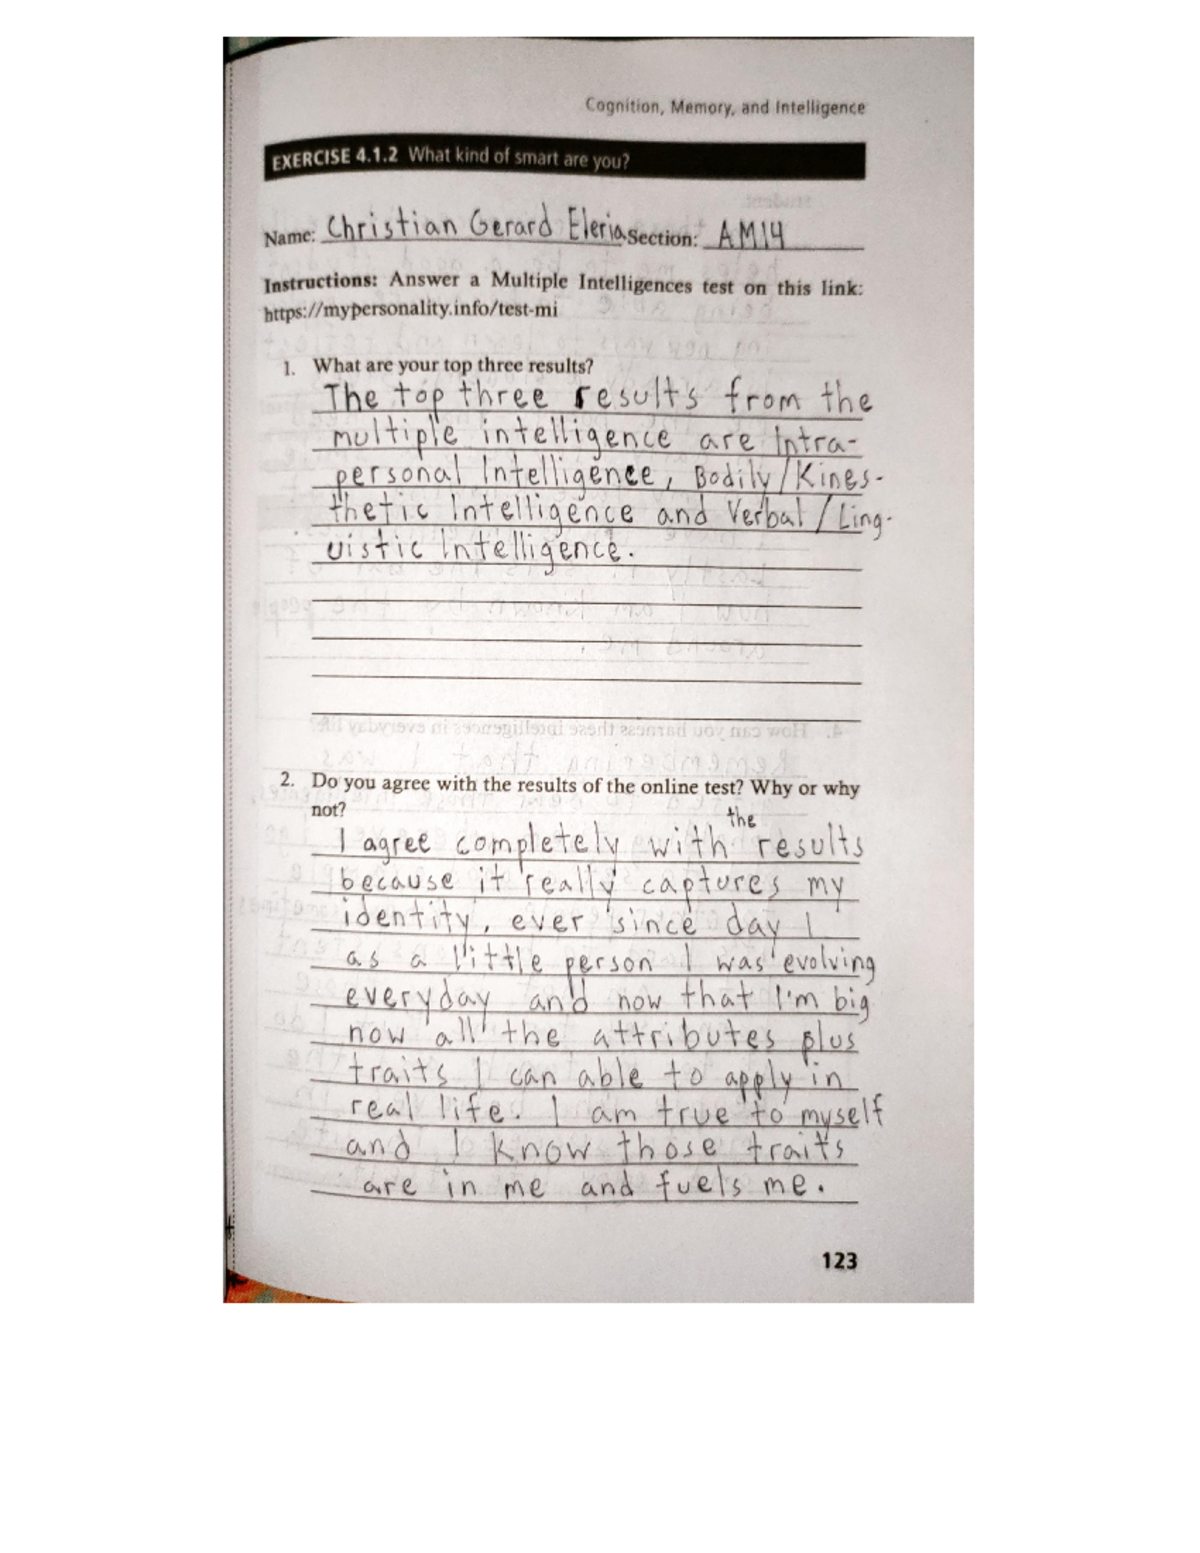 Cognition, Memory, and Intelligence
EXERCISE 4.1.2 What kind of smart are you?
Name: Christian Gerard Eleria Section: AM14
Instructions: Answer a Multiple Intelligences test on this link:
https://mypersonality.info/test-mi
1. What are your top three results?
The top three results from the
multiple intelligence are Intra-
personal Intelligence, Bodily/Kines-
thetic Intelligence and Verbal/Ling-
uistic Intelligence.
4. How can you harness these intelligences in everyday life?
2. Do you agree with the results of the online test? Why or why
not?
the
I agree completely with results
because it really captures my
identity, ever since day 1
as a little person I was evolving
everyday and now that I'm big
now all the attributes plus
traits I can able to apply in
real life. I am true to myself
and I know those traits
are in me and fuels me.
123